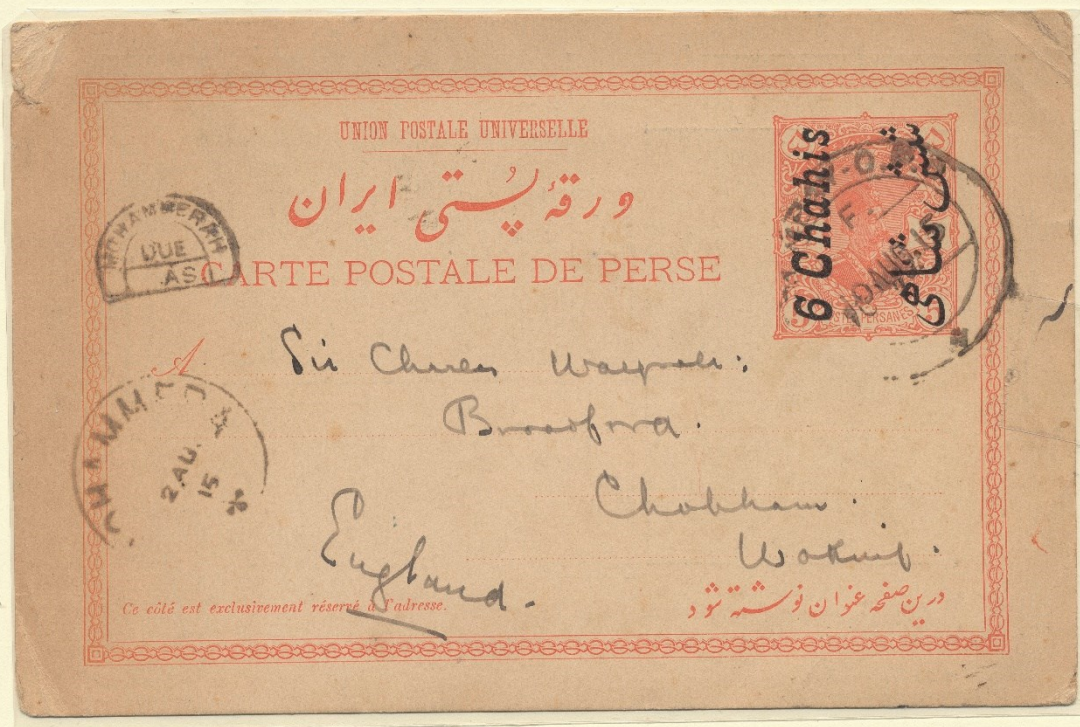 UNION POSTALE UNIVERSELLE
ورقهٔ پُستی ایران
CARTE POSTALE DE PERSE
6 Chahis
شش شاهی
5
5
MOHAMMERAH
DUE
AS
A
Sir Charles
Broadford.
Chobham.
Woking.
England.
2 AU.
15
Ce côté est exclusivement réservé à l'adresse.
درین صفحه عنوان نوشته شود